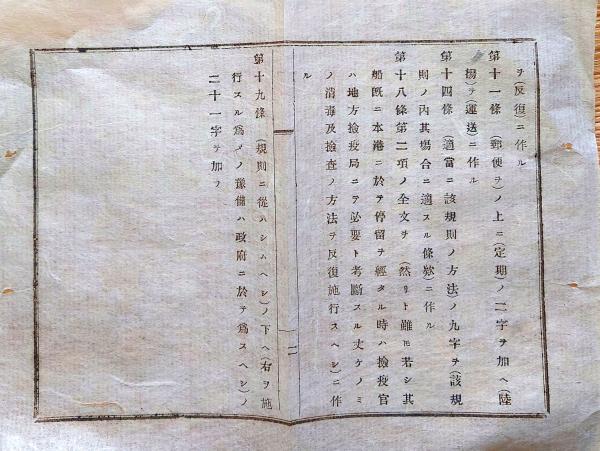 ヲ(反復)ニ作ル
第十一條 (郵便ヲ)ノ上ニ(定期)ノ二字ヲ加ヘ(陸
揚)ヲ(運送)ニ作ル
第十四條 (適當ニ該規則ノ方法)ノ九字ヲ(該規
則ノ內其塲合ニ適スル條欵)ニ作ル
第十八條第二項ノ全文ヲ (然リト雖𪜈若シ其
船旣ニ本港ニ於テ停留ヲ經タル時ハ撿疫官
ハ地方撿疫局ニテ必要ト考斷スル丈ケノミ
ノ消毒及撿査ノ方法ヲ反復施行スヘシ)ニ作
ル
二
第十九條 (規則ニ從ハシムヘシ)ノ下ヘ(右ヲ施
行スル爲メノ豫備ハ政府ニ於テ爲スヘシ)ノ
二十一字ヲ加フ